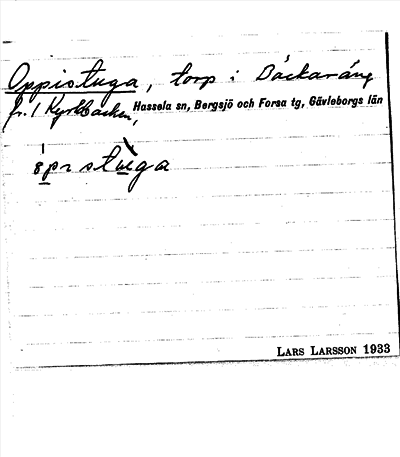 Oppistuga, torp i Backaräng
fr. 1 Kyrkbacken, Hassela sn, Bergsjö och Forsa tg, Gävleborgs län
stuga
LARS LARSSON 1933